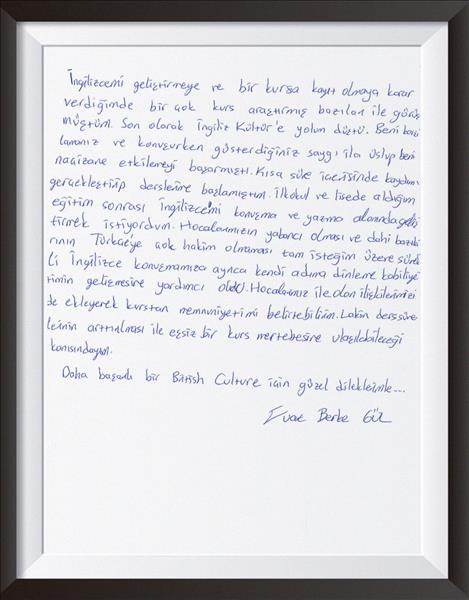 İngilizcemi geliştirmeye ve bir kursa kayıt olmaya karar
verdiğimde bir çok kurs araştırmış bazıları ile görüş
müştüm. Son olarak İngiliz Kültür'e yolum düştü. Beni karşı
lamanız ve konuşurken gösterdiğiniz saygı ila üslup beni
naçizane etkilemeyi başarmıştı. Kısa süle içerisinde kaydımı
gerçekleştirip derslerime başlamıştım. İlkokul ve lisede aldığım
eğitim sonrası İngilizcemi konuşma ve yazma alanında geliş
tirmek istiyordum. Hocalarımızın yabancı olması ve dahi bazıla
rının Türkçe'ye çok hakim olmaması tam isteğim üzere sürek
li İngilizce konuşmamıza ayrıca kendi adıma dinleme kabiliye
timin gelişmesine yardımcı oldu. Hocalarımız ile olan ilişkilerimizi
de ekleyerek kurstan memnuniyetimi belirtebilirim. Lakin ders süre
lerinin arttırılması ile eşsiz bir kurs mertebesine ulaşılabileceği
kanısındayım.
Daha başarılı bir British Culture için güzel dileklerimle...
Berke GÜL